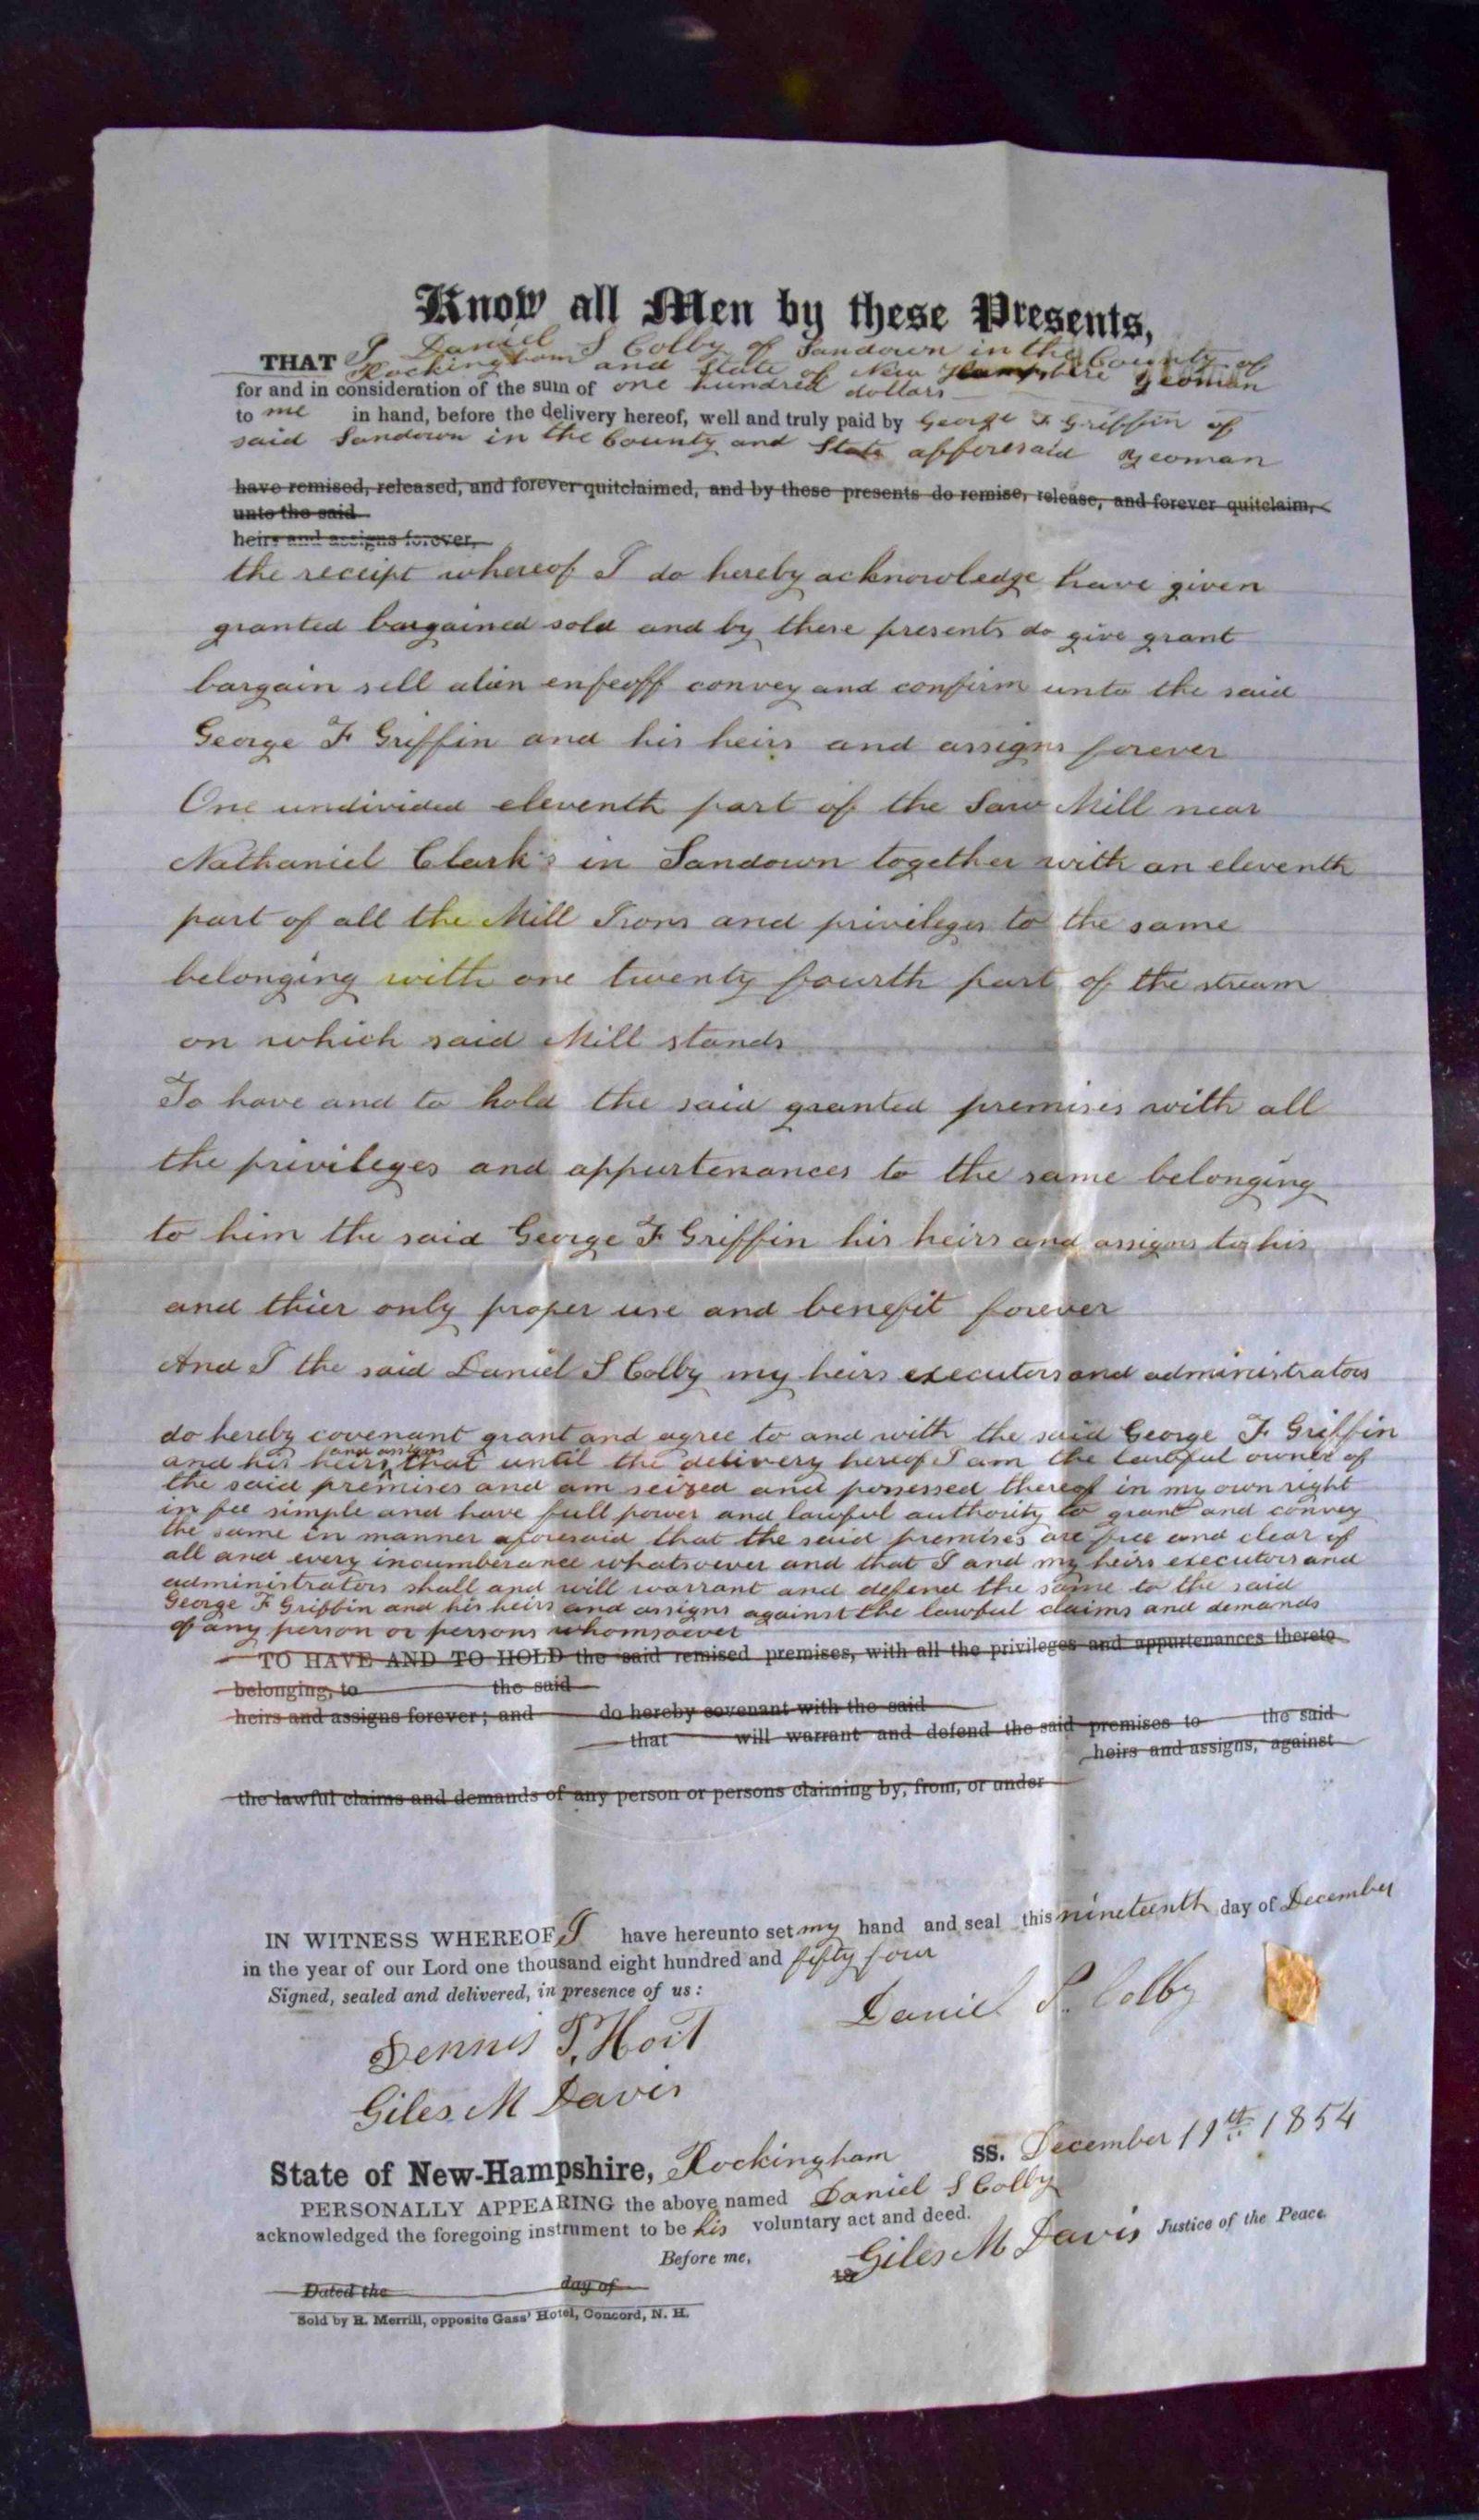 Know all Men by these Presents,
THAT I Daniel S Colby of Sandown in the County of
Rockingham and State of New Hampshire Yeoman
for and in consideration of the sum of one hundred dollars
to me in hand, before the delivery hereof, well and truly paid by George F Griffin of
said Sandown in the County and State afforesaid Yeoman
have remised, released, and forever quitclaimed, and by these presents do remise, release, and forever quitclaim,
unto the said
heirs and assigns forever,
the receipt whereof I do hereby acknowledge have given
granted bargained sold and by these presents do give grant
bargain sell alien enfeoff convey and confirm unto the said
George F Griffin and his heirs and assigns forever
One undivided eleventh part of the Saw Mill near
Nathaniel Clark's in Sandown together with an eleventh
part of all the Mill Irons and privileges to the same
belonging with one twenty fourth part of the stream
on which said Mill stands
To have and to hold the said granted premises with all
the privileges and appurtenances to the same belonging
to him the said George F Griffin his heirs and assigns to his
and thier only proper use and benefit forever
And I the said Daniel S Colby my heirs executors and administrators
do hereby covenant grant and agree to and with the said George F Griffin
and his heirs and assigns that until the delivery hereof I am the lawful owner of
the said premises and am seized and possessed thereof in my own right
in fee simple and have full power and lawful authority to grant and convey
the same in manner aforesaid that the said premises are free and clear of
all and every incumberance whatsoever and that I and my heirs executors and
administrators shall and will warrant and defend the same to the said
George F Griffin and his heirs and assigns against the lawful claims and demands
of any person or persons whomsoever
TO HAVE AND TO HOLD the said remised premises, with all the privileges and appurtenances thereto
belonging, to the said
heirs and assigns forever; and do hereby covenant with the said
that will warrant and defend the said premises to the said
heirs and assigns, against
the lawful claims and demands of any person or persons claiming by, from, or under
IN WITNESS WHEREOF, I have hereunto set my hand and seal this nineteenth day of December
in the year of our Lord one thousand eight hundred and fifty four
Signed, sealed and delivered, in presence of us:
Daniel S. Colby
Dennis T. Hoit
Giles M Davis
State of New-Hampshire, Rockingham ss. December 19th 1854
PERSONALLY APPEARING the above named Daniel S Colby
acknowledged the foregoing instrument to be his voluntary act and deed.
Before me, Giles M Davis Justice of the Peace.
Dated the day of 18
Sold by R. Merrill, opposite Gass' Hotel, Concord, N. H.